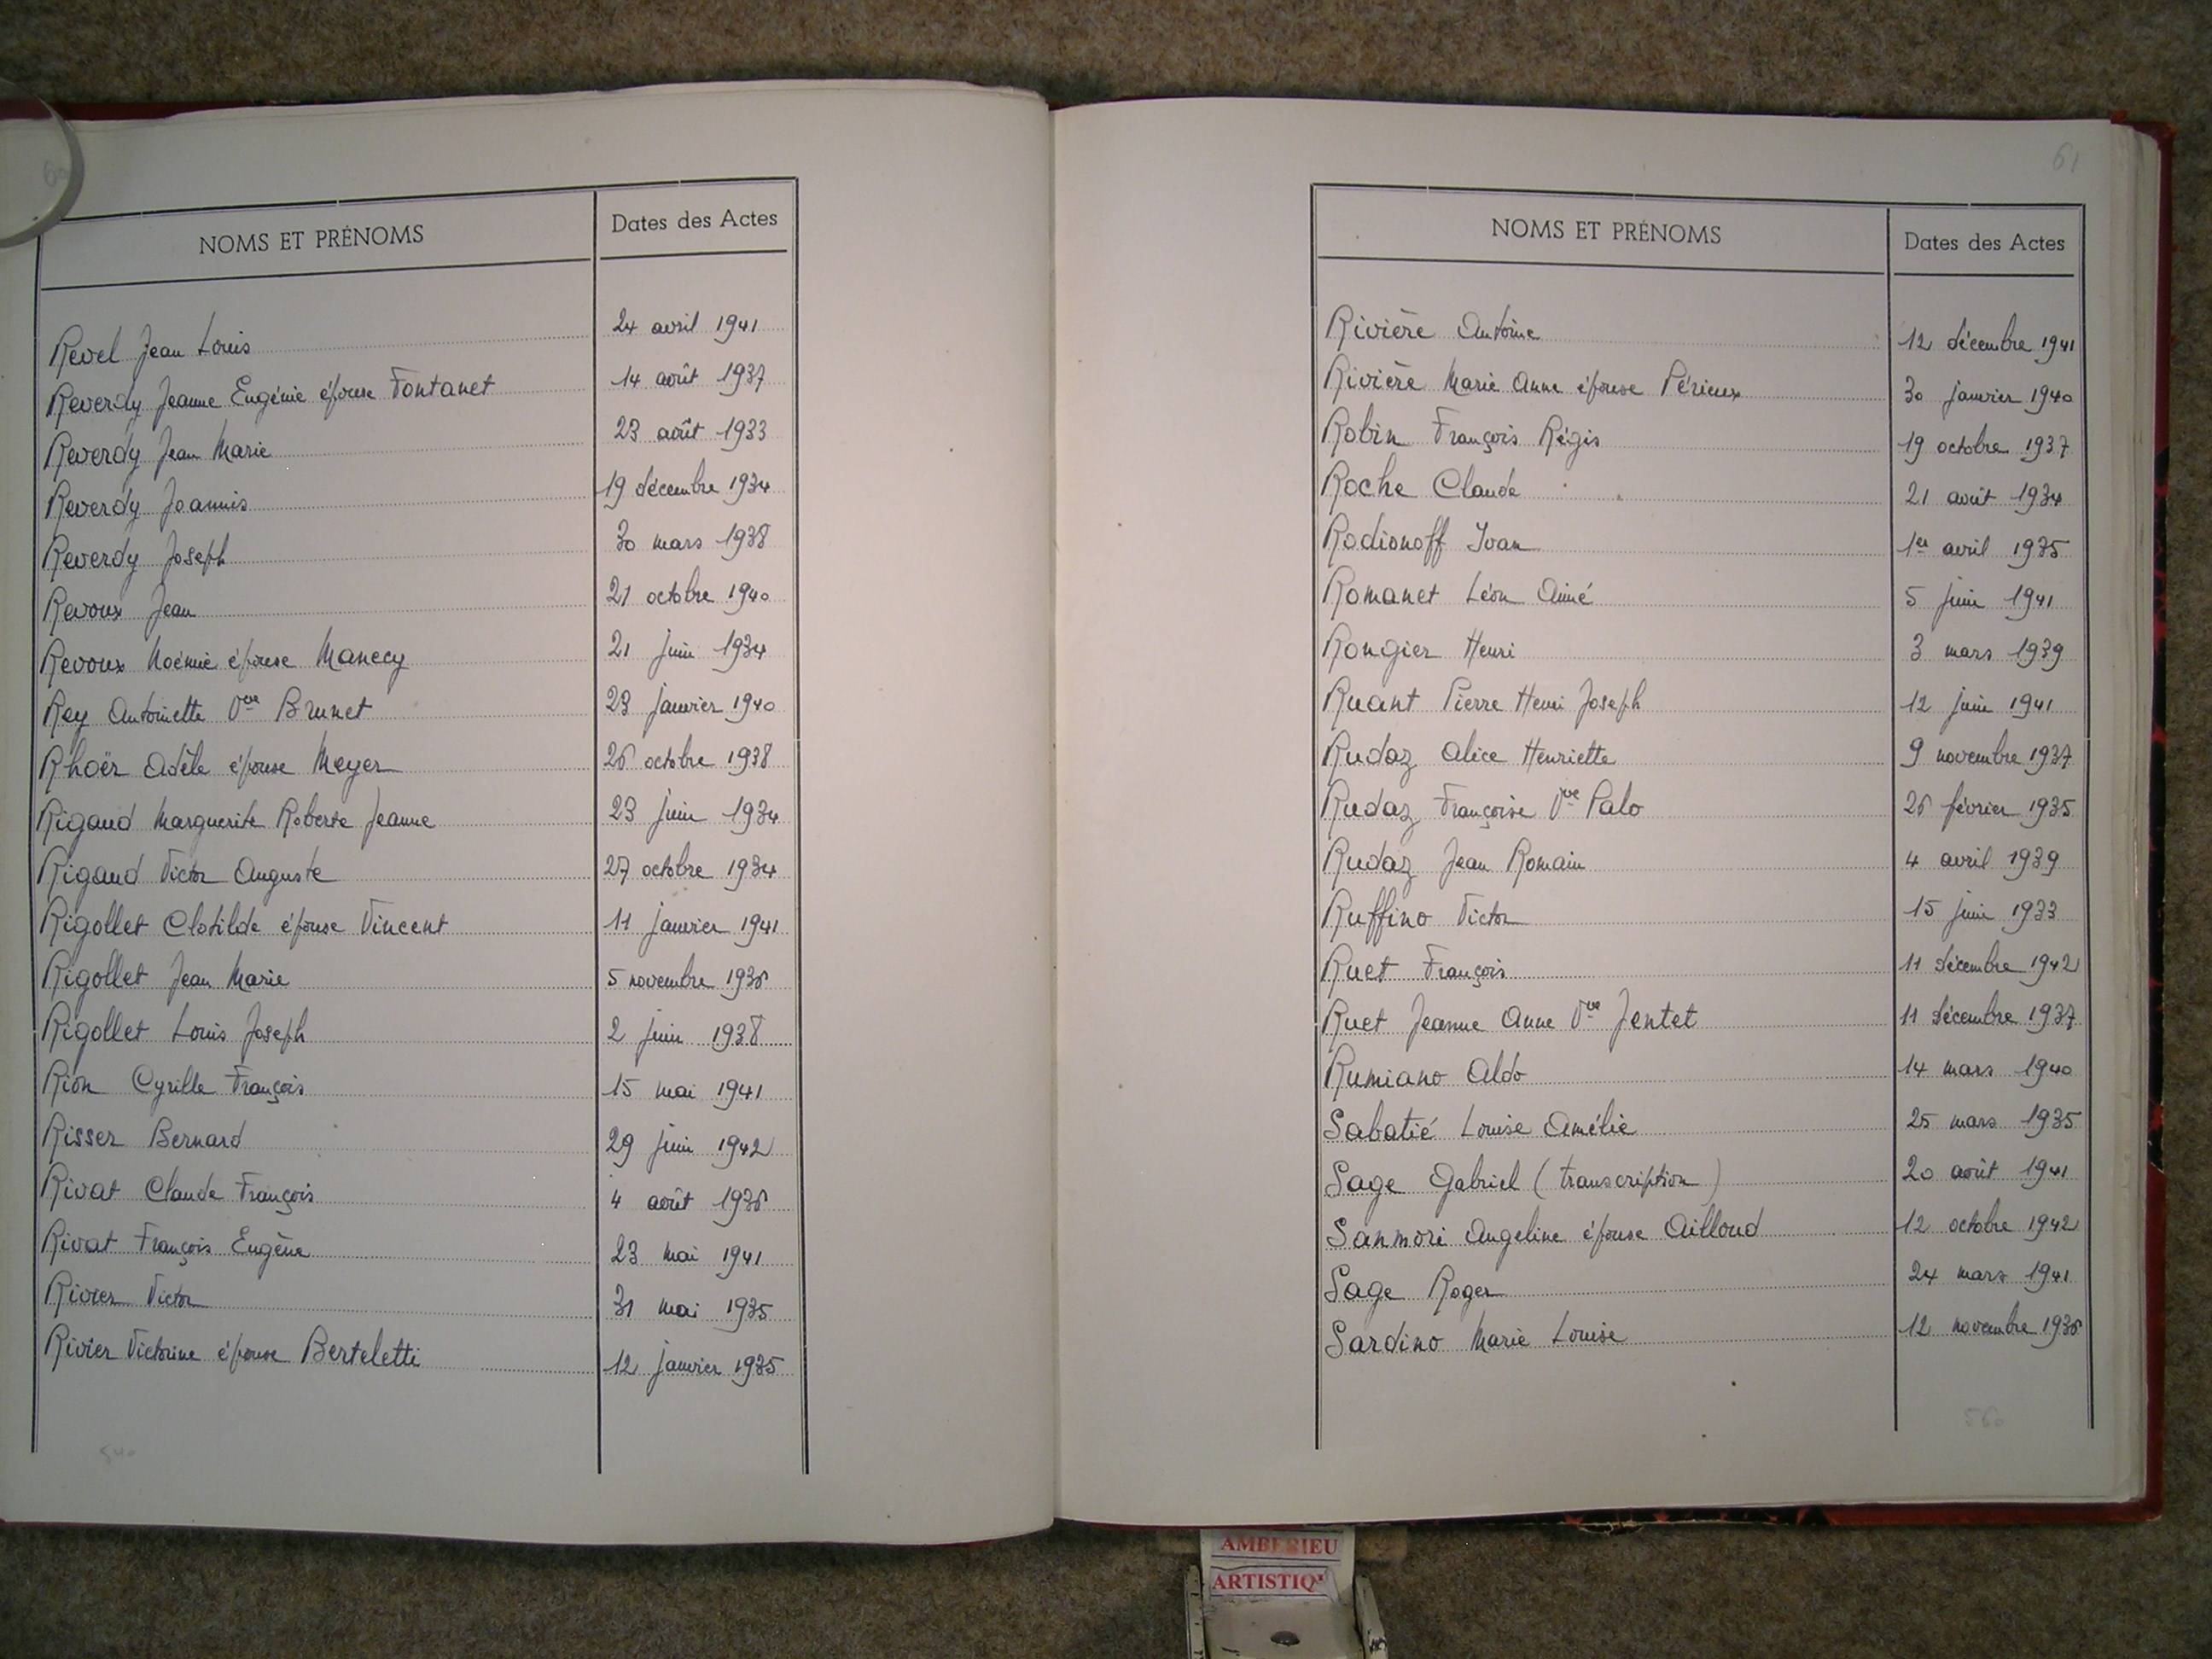 60
NOMS ET PRÉNOMS Dates des Actes
Revel Jean Louis 24 avril 1941
Reverdy Jeanne Eugénie épouse Fontanet 14 août 1937
Reverdy Jean Marie 23 août 1933
Reverdy Joannis 19 décembre 1934
Reverdy Joseph 30 mars 1938
Revoux Jean 21 octobre 1940
Revoux Noémie épouse Manecy 21 juin 1934
Rey Antoinette Vve Brunet 23 janvier 1940
Rhoër Adèle épouse Meyer 26 octobre 1938
Rigaud Marguerite Roberte Jeanne 23 juin 1934
Rigaud Victor Auguste 27 octobre 1934
Rigollet Clotilde épouse Vincent 11 janvier 1941
Rigollet Jean Marie 5 novembre 1936
Rigollet Louis Joseph 2 juin 1938
Rion Cyrille François 15 mai 1941
Risser Bernard 29 juin 1942
Rivat Claude François 4 août 1936
Rivat François Eugène 23 mai 1941
Rivier Victor 31 mai 1935
Rivier Victorine épouse Berteletti 12 janvier 1935
540
61
NOMS ET PRÉNOMS Dates des Actes
Rivière Antoine 12 décembre 1941
Rivière Marie Anne épouse Périeux 30 janvier 1940
Robin François Régis 19 octobre 1937
Roche Claude 21 août 1934
Rodionoff Ivan 1er avril 1935
Romanet Léon Aimé 5 juin 1941
Rongier Henri 3 mars 1939
Ruant Pierre Henri Joseph 12 juin 1941
Rudaz Alice Henriette 9 novembre 1937
Rudaz Françoise Vve Palo 26 février 1935
Rudaz Jean Romain 4 avril 1939
Ruffino Victor 15 juin 1933
Ruet François 11 décembre 1942
Ruet Jeanne Anne Vve Jentet 11 décembre 1937
Rumiano Aldo 14 mars 1940
Sabatié Louise Amélie 25 mars 1935
Sage Gabriel (transcription) 20 août 1941
Sanmori Angeline épouse Ailloud 12 octobre 1942
Sage Roger 24 mars 1941
Sardino Marie Louise 12 novembre 1936
560
AMBERIEU
ARTISTIQ